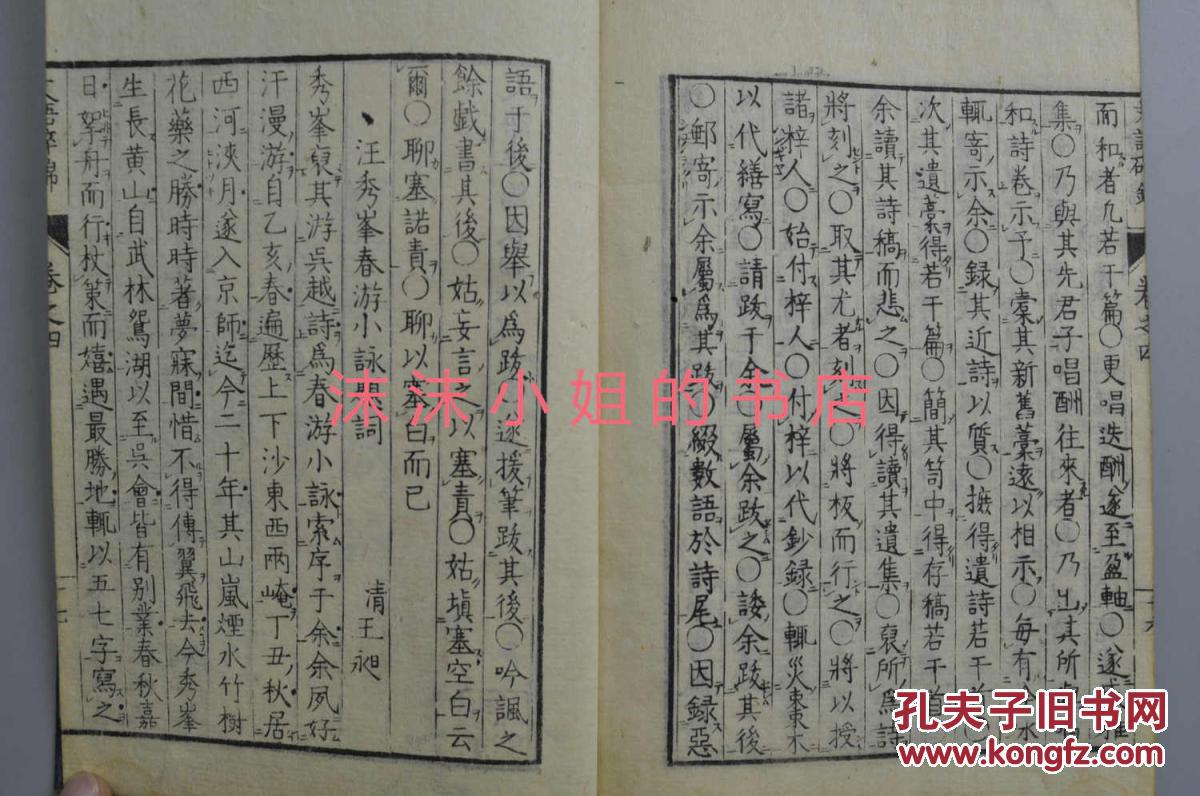 而和者凡若干篇〇更唱迭酬遂至盈軸〇遂
集〇乃與其先君子唱酬往來者〇乃出其所
和詩卷示予〇橐其新舊藁遠以相示〇每有
輒寄示余〇録其近詩以質〇摭得遺詩若干
次其遺藁得若干篇〇簡其笥中得存稿若干首
余讀其詩稿而悲之〇因得讀其遺集〇裒所爲詩
將刻之〇取其尤者刻〇將板而行之〇將以授
諸梓人〇始付梓人〇付梓以代鈔録〇輒災棗不
以代繕寫〇請跋于余〇屬余跋之〇諉余跋其後
〇郵寄示余屬爲其跋〇綴數語於詩尾〇因録惡
語于後〇因舉以爲跋〇遂援筆跋其後〇吟諷之
餘戲書其後〇姑妄言之以塞責〇姑塡塞空白云
爾〇聊塞諾責〇聊以塞白而已
汪秀峯春游小詠序詞
清王昶
秀峯裒其游吳越詩爲春游小詠索序于余余夙好
汗漫游自乙亥春遍歷上下沙東西兩崦丁丑秋居
西河浹月遂入京師迄今二十年其山嵐煙水竹樹
花藥之勝時時著夢寐間惜不得傳翼飛去今秀峯
生長黃山自武林鴛湖以至吳會皆有別業春秋嘉
日挐舟而行杖策而嬉遇最勝地輒以五七字寫之
卷之四
沫沫小姐的书店
孔夫子旧书网
www.kongfz.com